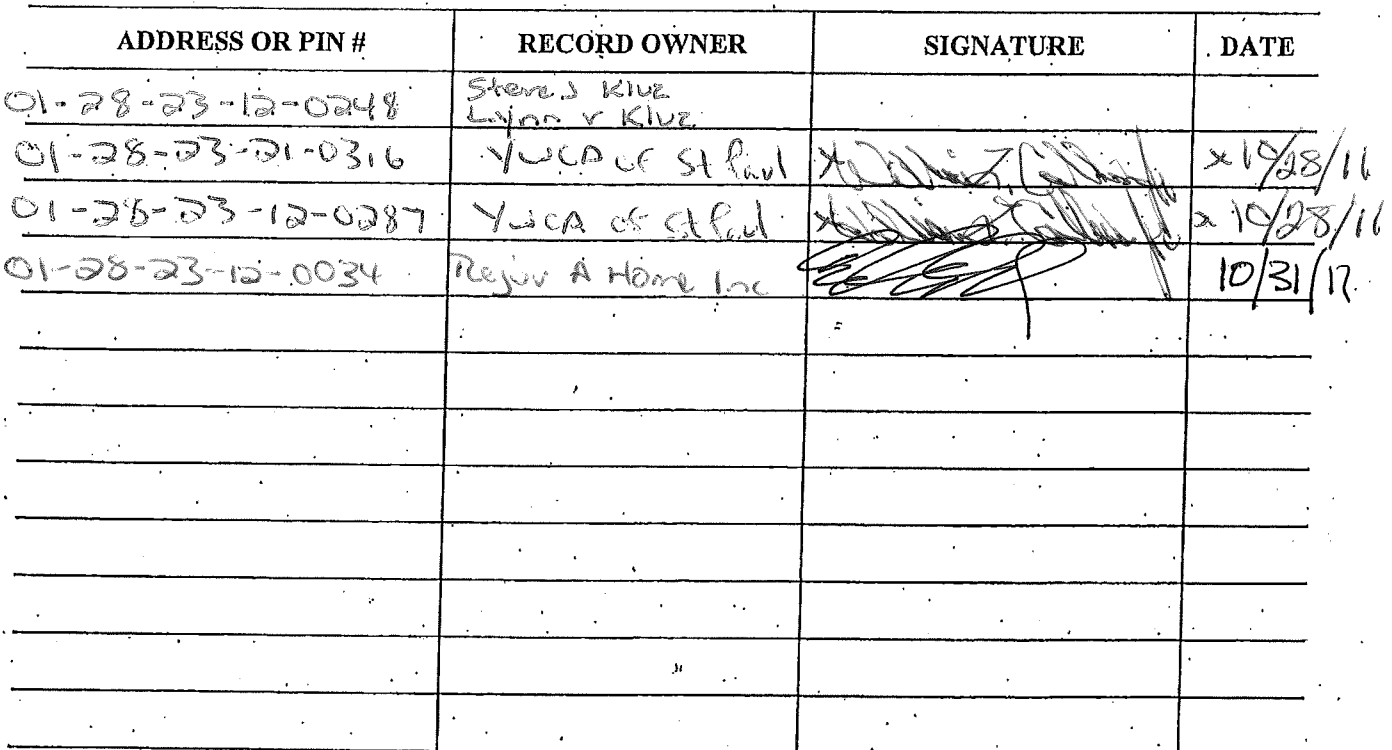 ADDRESS OR PIN # RECORD OWNER SIGNATURE DATE
01-28-23-12-0248 Steve J Kluz
Lynn v Kluz
01-28-23-21-0316 YWCA of St Paul x 10/28/16
01-28-23-12-0287 YWCA of St Paul x 10/28/16
01-28-23-12-0034 Rejuv A Home Inc 10/31/17